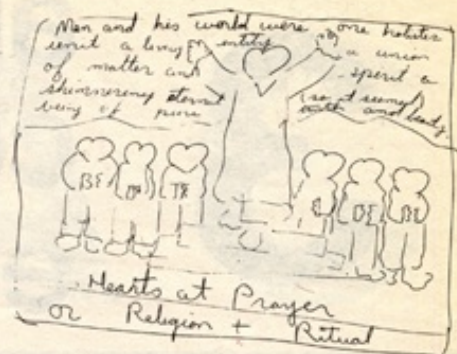 Men and his world were one holistic
unit a living entity a union
of matter and spirit a
shimmering eternal (so it seemed)
being of pure truth and beauty
BE
TR
BE
Hearts at Prayer
or Religion + Ritual